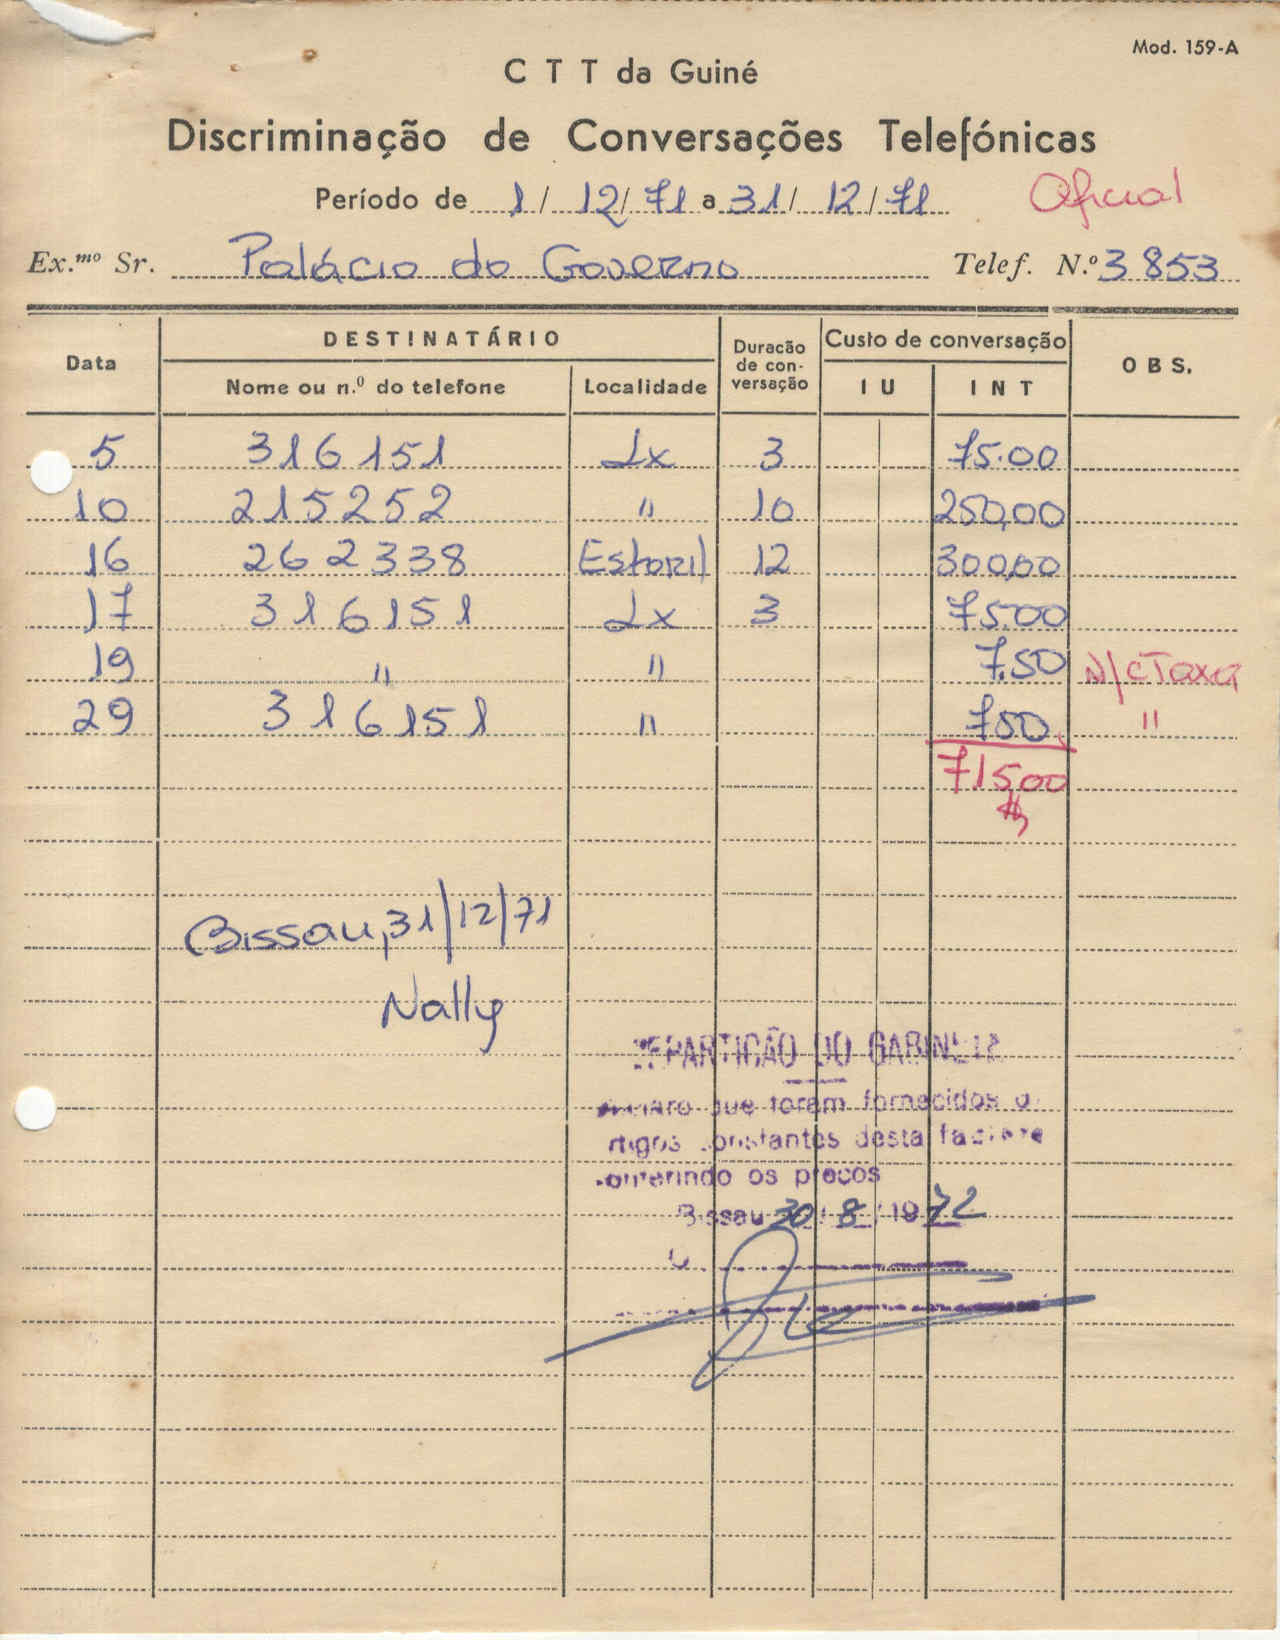 Mod. 159-A
C T T da Guiné
Discriminação de Conversações Telefónicas
Período de 1/ 12/ 71 a 31/ 12/ 71 Oficial
Ex.mo Sr. Palácio do Governo Telef. N.º 3853
Data DESTINATÁRIO Duração de con-versação Custo de conversação OBS.
Nome ou n.º do telefone Localidade I U I N T
5 316151 Lx 3 75.00
10 215252 " 10 250,00
16 262338 Estoril 12 300,00
17 316151 Lx 3 75.00
19 " " 7.50 N/c Taxa
29 316151 " 7.50 "
715,00
Bissau, 31/12/71
Nally
REPARTIÇÃO DO GABINETE
que foram fornecidos
constantes desta
os preços
Bissau 30/8/1972